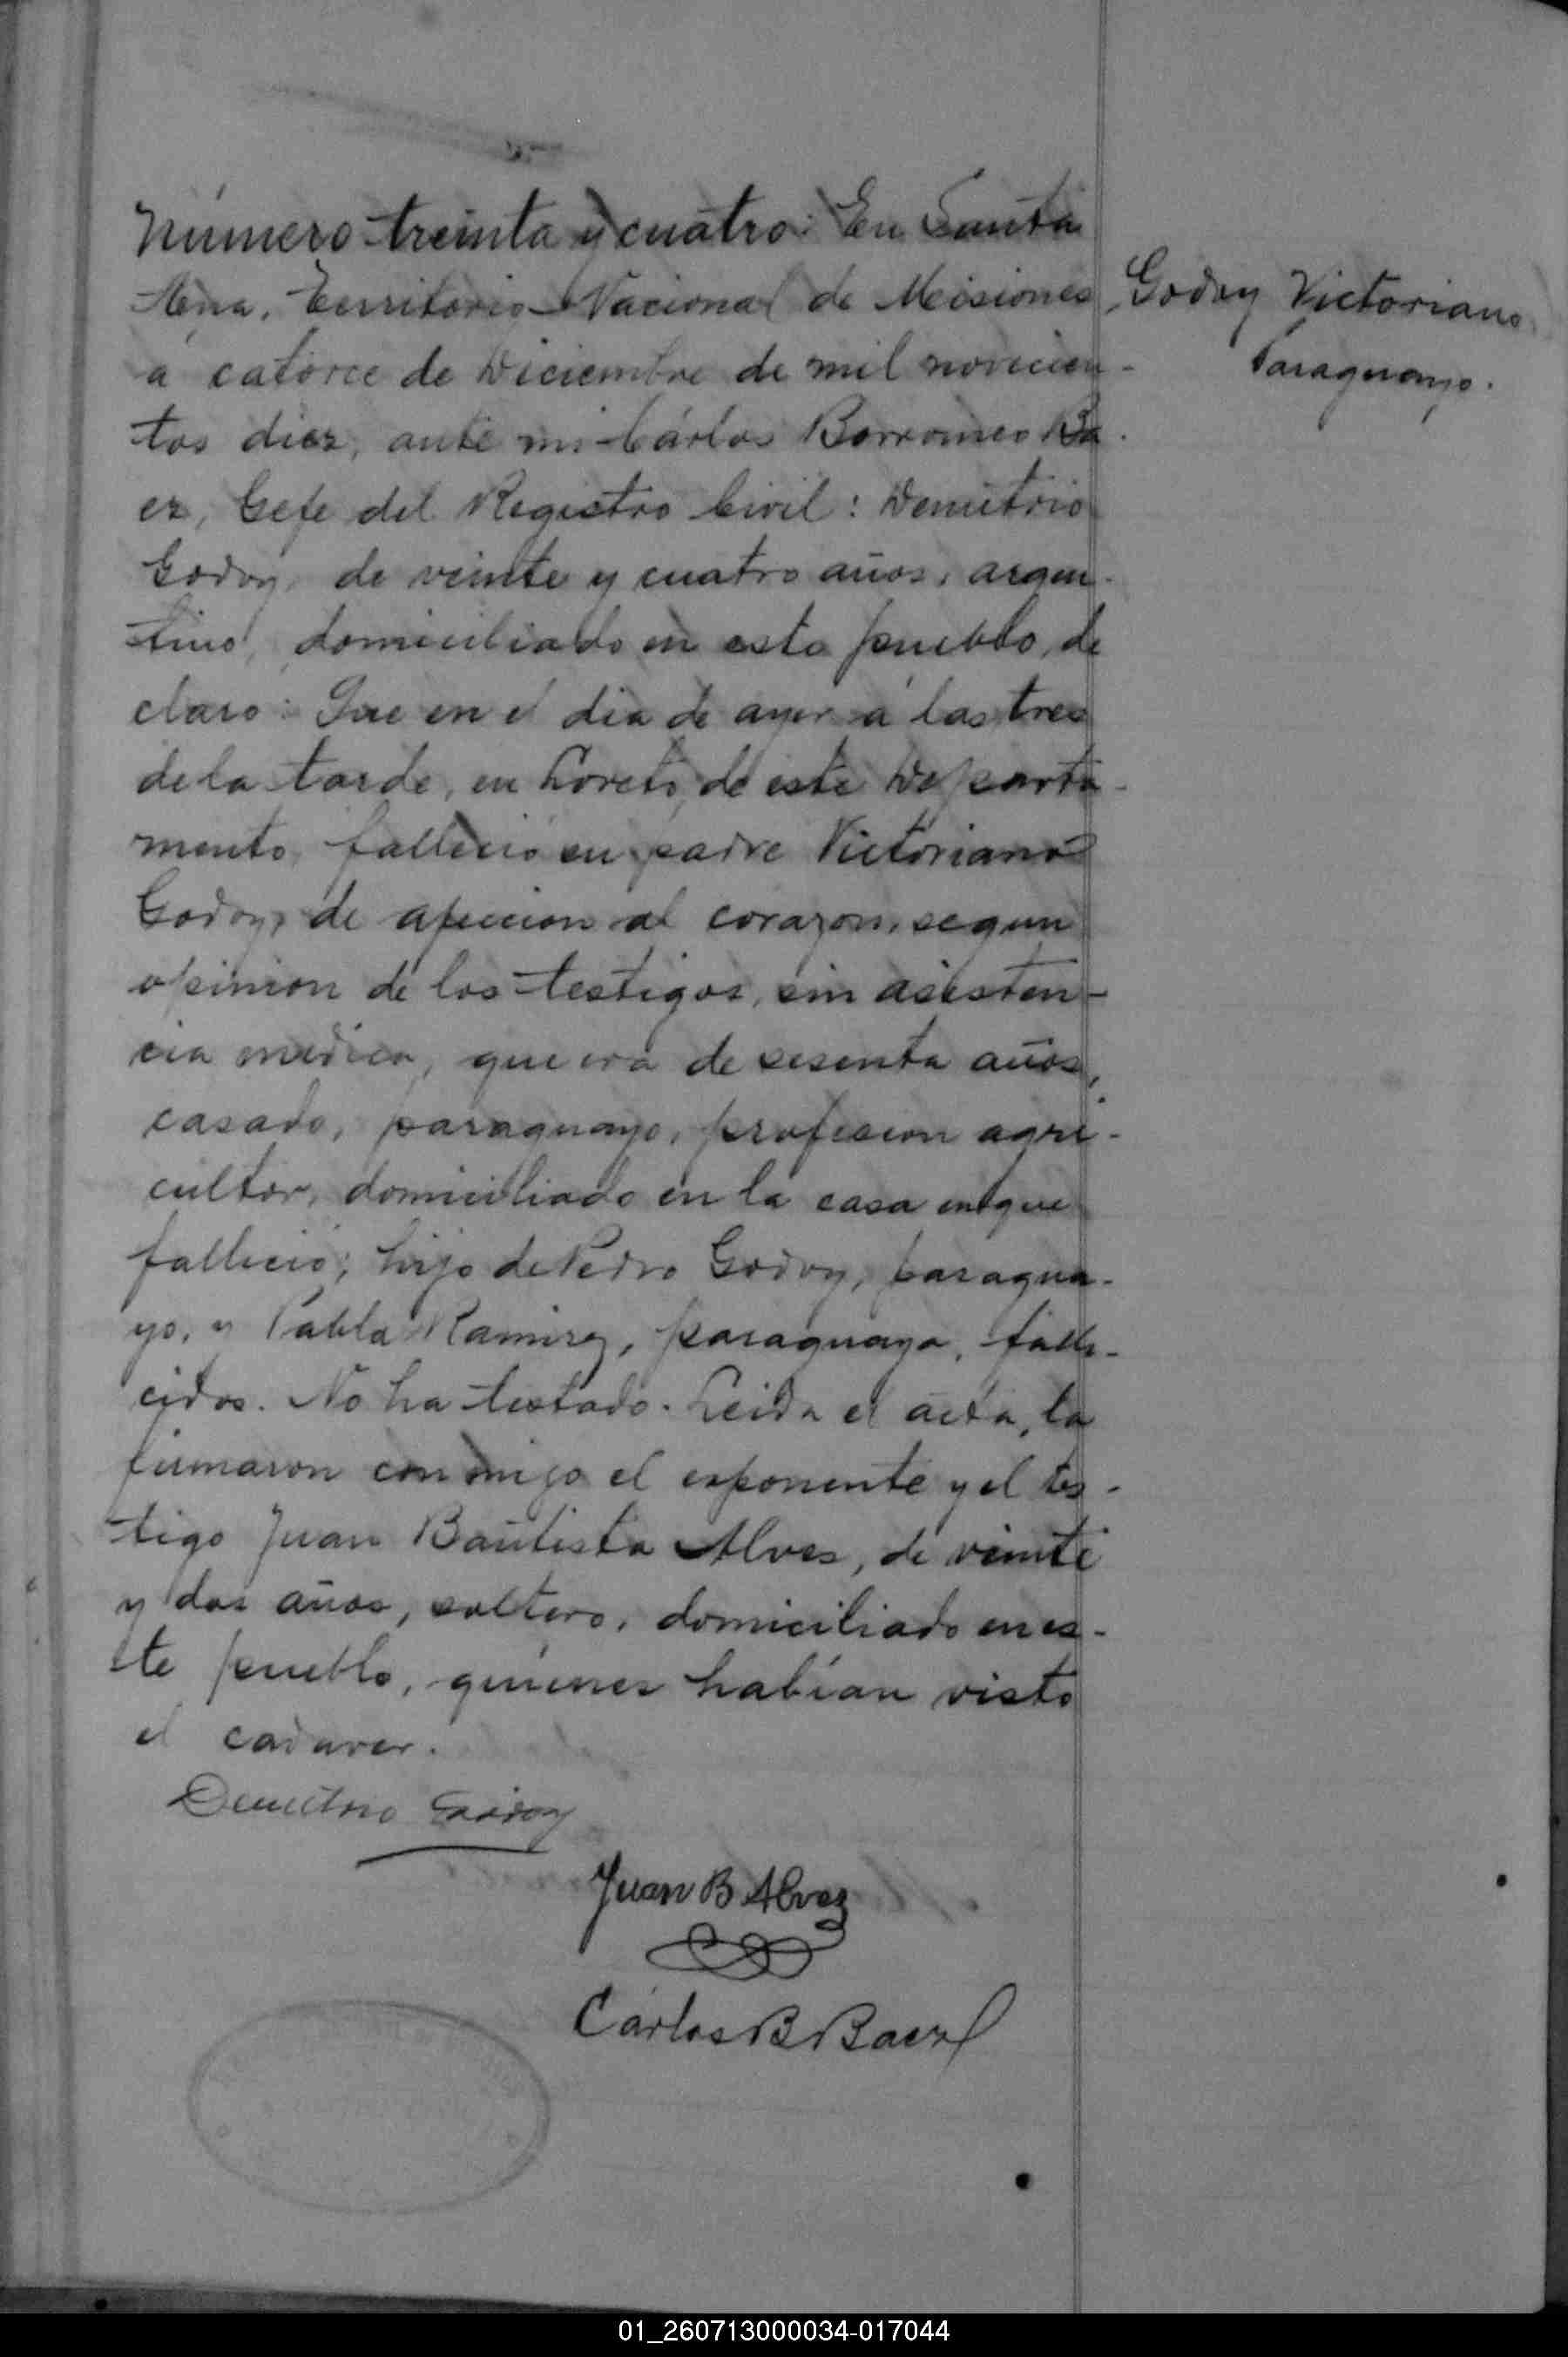 Número treinta y cuatro: En Santa
Ana, Territorio Nacional de Misiones
Godoy Victoriano
Paraguayo.
á catorce de Diciembre de mil novecien-
tos diez, ante mi Cárlos Borromeo Ba-
ez, Gefe del Registro Civil: Demetrio
Godoy, de veinte y cuatro años, argen-
tino, domiciliado en este pueblo, de
claro: Que en el dia de ayer á las tres
de la tarde, en Loreto, de este Departa-
mento, falleció su padre Victoriano
Godoy, de afeccion al corazon, segun
opinion de los testigos, sin asisten-
cia médica, que era de sesenta años,
casado, paraguayo, profesion agri-
cultor, domiciliado en la casa en que
falleció; hijo de Pedro Godoy, paragua-
yo, y Pabla Ramirez, paraguaya, falle-
cidos. No ha testado. Leida el acta, la
firmaron conmigo el exponente y el tes-
tigo Juan Bautista Alves, de veinte
y dos años, soltero, domiciliado en es-
te pueblo, quienes habían visto
el cadaver.
Demetrio Godoy
Juan B Alvez
Cárlos B Baez
01_260713000034-017044